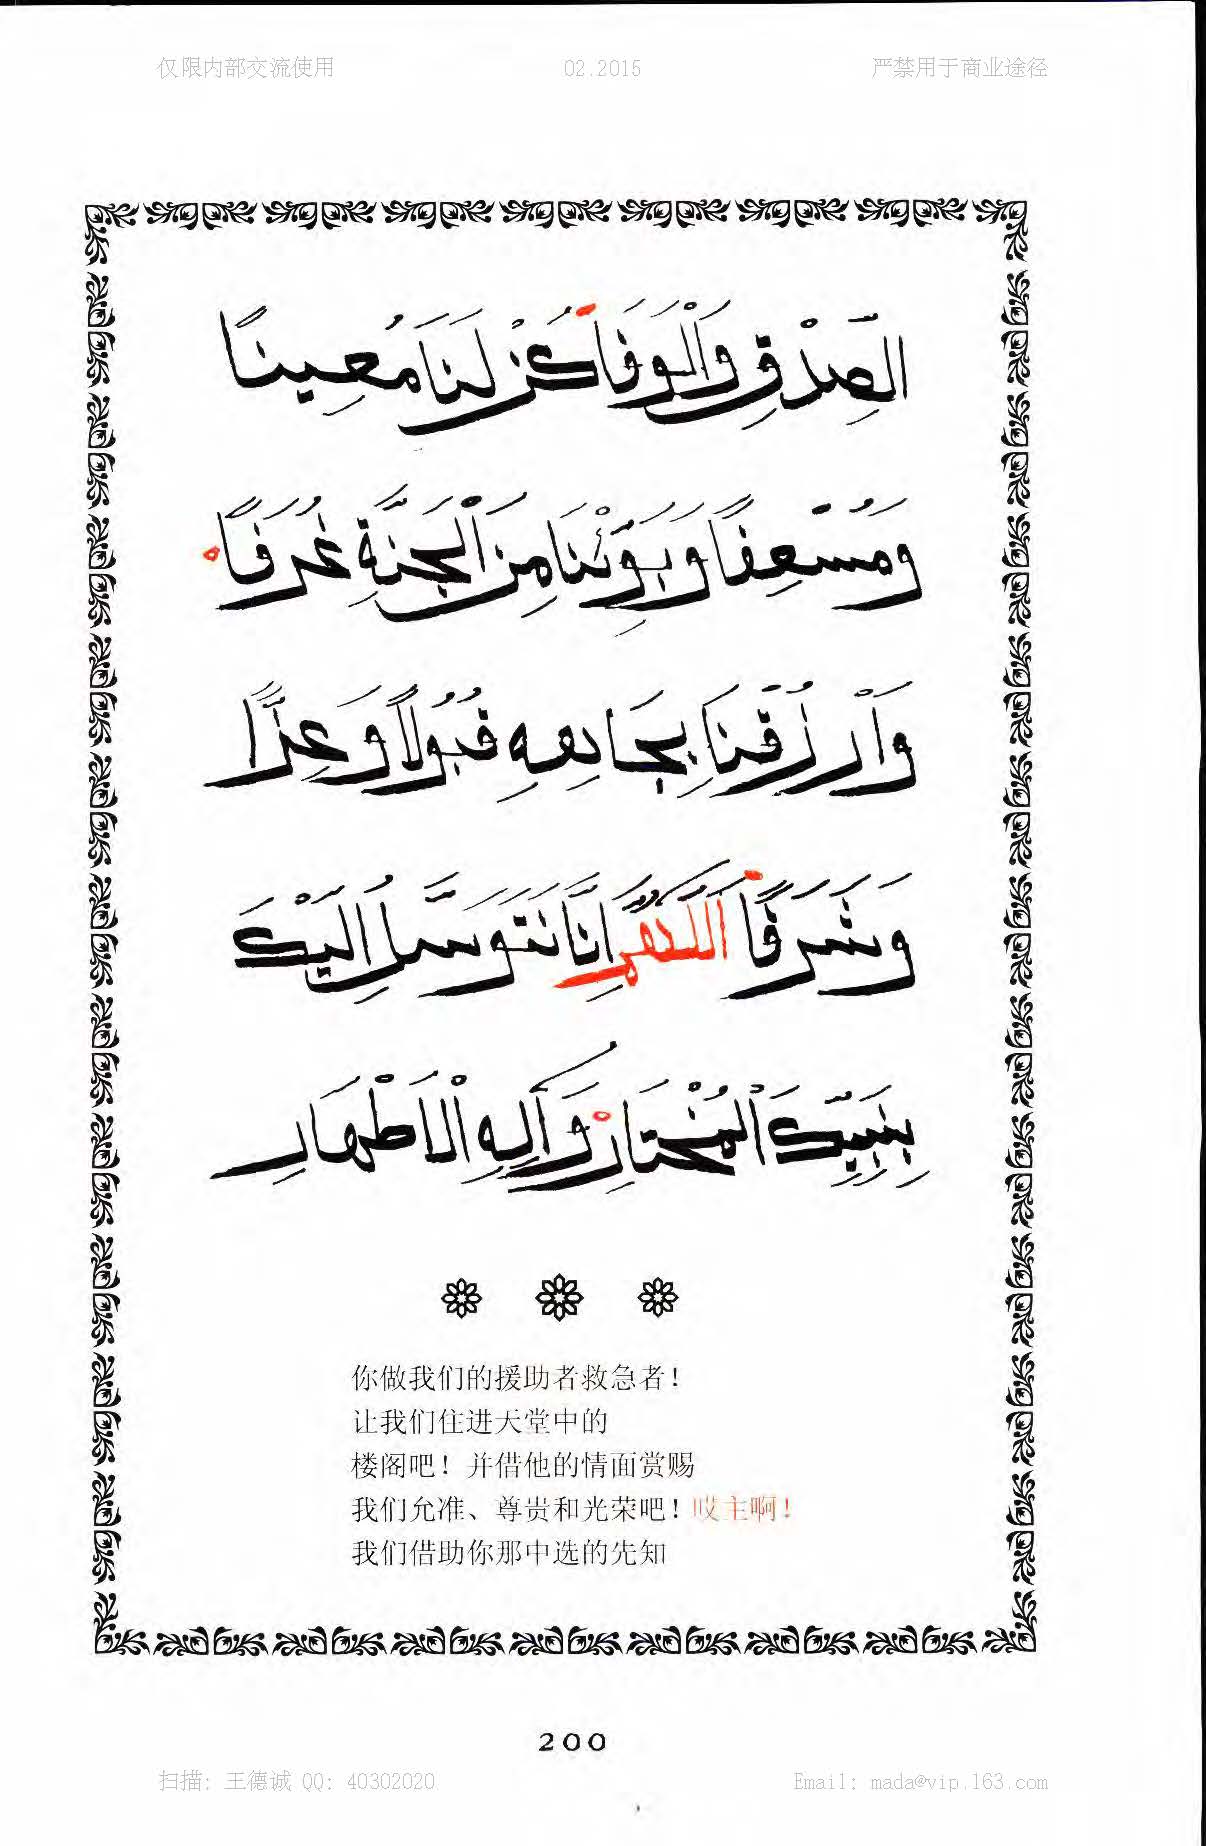 仅限内部交流使用 02.2015 严禁用于商业途径
الصِّدْقِ وَالْوَفَا كُنْ لَنَا مُعِينًا
وَمُسْعِفًا وَبَوِّئْنَا مِنَ الْجَنَّةِ غُرَفًا
وَارْزُقْنَا بِجَاهِهِ قُبُولًا وَعِزًّا
وَشَرَفًا اَللّٰهُمَّ اِنَّا نَتَوَسَّلُ اِلَيْكَ
بِنَبِيِّكَ الْمُخْتَارِ وَآلِهِ الْاَطْهَارِ
你做我们的援助者救急者！
让我们住进天堂中的
楼阁吧！并借他的情面赏赐
我们允准、尊贵和光荣吧！哎主啊！
我们借助你那中选的先知
200
扫描: 王德诚 QQ: 40302020 Email: mada@vip.163.com